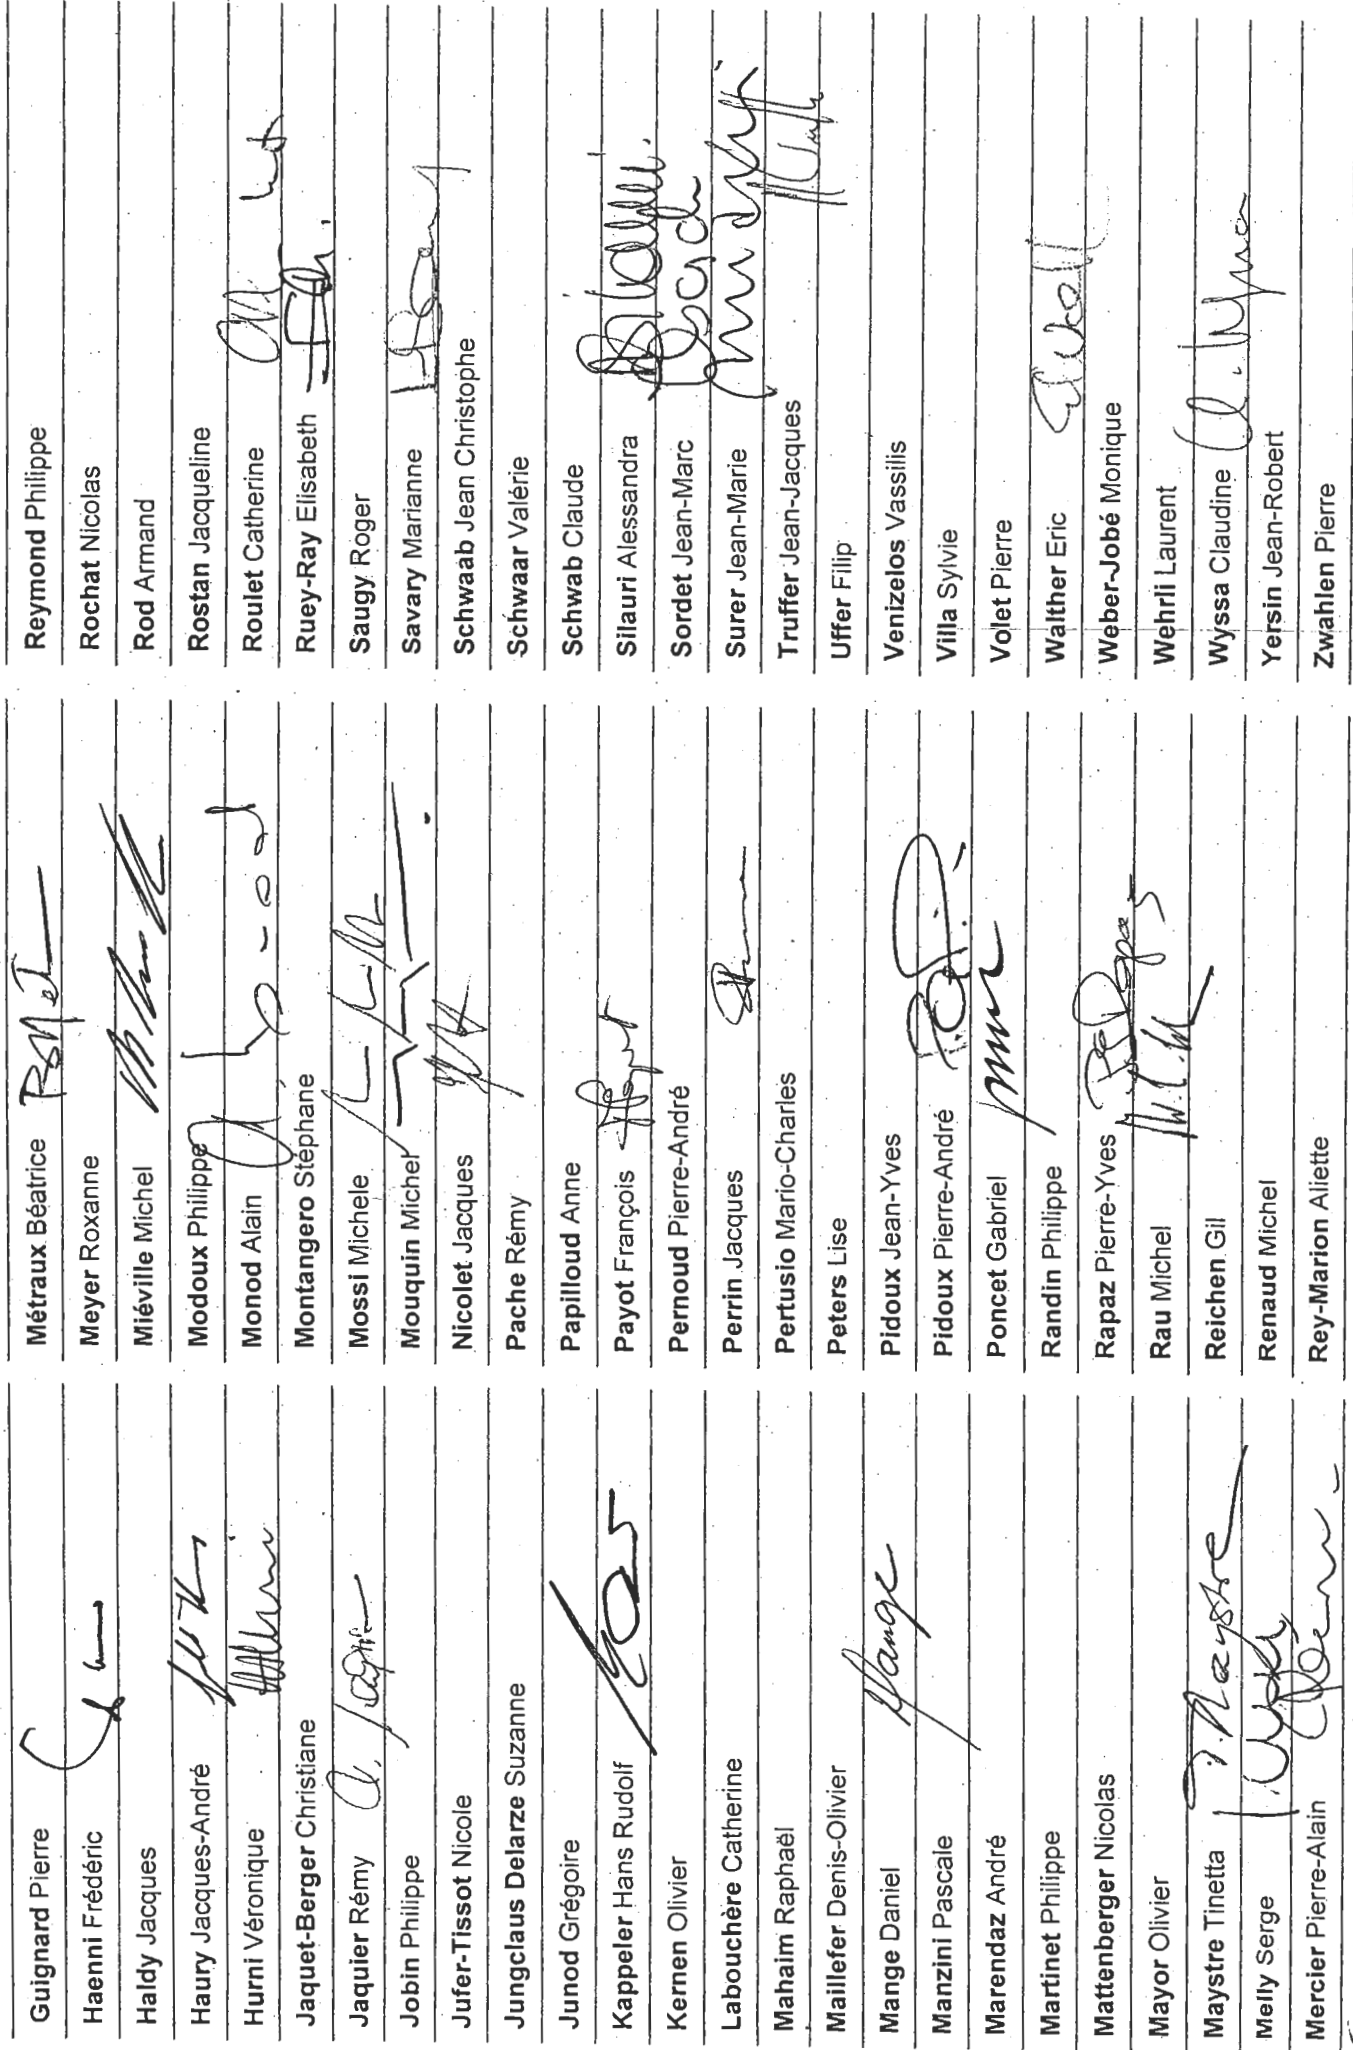 Guignard Pierre
Haenni Frédéric
Haldy Jacques
Haury Jacques-André
Hurni Véronique
Jaquet-Berger Christiane
Jaquier Rémy
Jobin Philippe
Jufer-Tissot Nicole
Jungclaus Delarze Suzanne
Junod Grégoire
Kappeler Hans Rudolf
Kernen Olivier
Labouchère Catherine
Mahaim Raphaël
Maillefer Denis-Olivier
Mange Daniel Mange
Manzini Pascale
Marendaz André
Martinet Philippe
Mattenberger Nicolas
Mayor Olivier
Maystre Tinetta T. Maystre
Melly Serge
Mercier Pierre-Alain
Métraux Béatrice
Meyer Roxanne
Miéville Michel
Modoux Philippe
Monod Alain
Montangero Stéphane
Mossi Michele
Mouquin Michel
Nicolet Jacques
Pache Rémy
Papilloud Anne
Payot François
Pernoud Pierre-André
Perrin Jacques
Pertusio Mario-Charles
Peters Lise
Pidoux Jean-Yves
Pidoux Pierre-André
Poncet Gabriel
Randin Philippe
Rapaz Pierre-Yves
Rau Michel
Reichen Gil
Renaud Michel
Rey-Marion Aliette
Reymond Philippe
Rochat Nicolas
Rod Armand
Rostan Jacqueline
Roulet Catherine
Ruey-Ray Elisabeth
Saugy Roger
Savary Marianne
Schwaab Jean Christophe
Schwaar Valérie
Schwab Claude
Silauri Alessandra
Sordet Jean-Marc
Surer Jean-Marie
Truffer Jean-Jacques
Uffer Filip
Venizelos Vassilis
Villa Sylvie
Volet Pierre
Walther Eric
Weber-Jobé Monique
Wehrli Laurent
Wyssa Claudine
Yersin Jean-Robert
Zwahlen Pierre